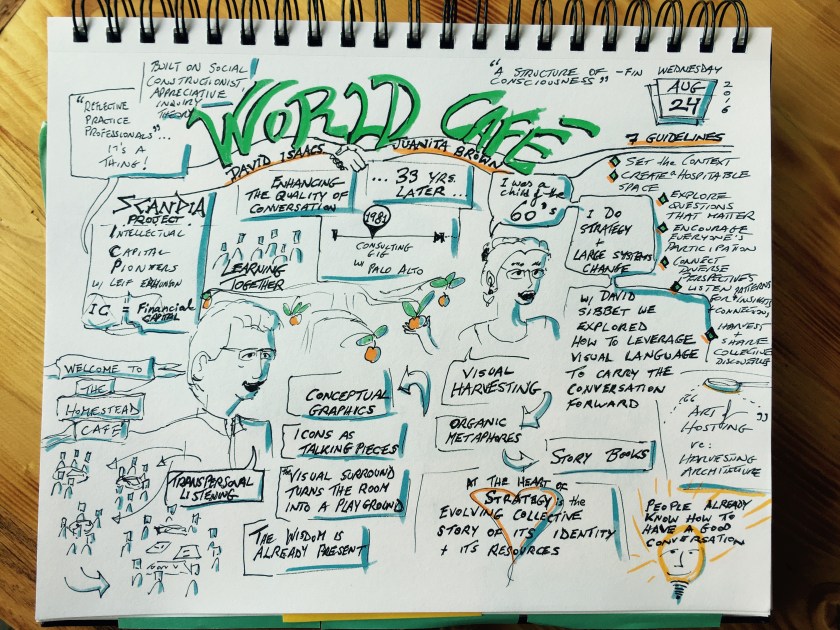 BUILT ON SOCIAL
CONSTRUCTIONIST,
APPRECIATIVE
INQUIRY
THEORY
"REFLECTIVE
PRACTICE
PROFESSIONALS"...
IT'S A
THING!
WORLD CAFE
DAVID ISAACS
JUANITA BROWN
"A STRUCTURE OF
CONSCIOUSNESS" -FIN
WEDNESDAY
AUG
24
2016
7 GUIDELINES
SET the CONTEXT
CREATE a HOSPITABLE
SPACE
EXPLORE
QUESTIONS
THAT MATTER
ENCOURAGE
EVERYONE'S
PARTICIPATION
CONNECT
DIVERSE
PERSPECTIVES
LISTEN PATTERNS
FOR INSIGHTS
CONNECTIONS
HARVEST
+
SHARE
COLLECTIVE
DISCOVERIES
SCANDIA
PROJECT:
INTELLECTUAL
CAPITAL
PIONEERS
W/ LEIF
IC = Financial
CAPITAL
ENHANCING
THE QUALITY OF
CONVERSATION
LEARNING
TOGETHER
... 33 YRS.
LATER...
1981
CONSULTING
GIG
W/ PALO ALTO
I was a
child of the
60's
I DO
STRATEGY
+
LARGE SYSTEMS
CHANGE
W/ DAVID
SIBBET WE
EXPLORED
HOW TO LEVERAGE
VISUAL LANGUAGE
TO CARRY THE
CONVERSATION
FORWARD
WELCOME TO
THE
HOMESTEAD
CAFE
TRANSPERSONAL
LISTENING
CONCEPTUAL
GRAPHICS
ICONS AS
TALKING PIECES
THE VISUAL SURROUND
TURNS THE ROOM
INTO A PLAYGROUND
THE WISDOM IS
ALREADY PRESENT
VISUAL
HARVESTING
ORGANIC
METAPHORES
STORY BOOKS
AT THE HEART OF
STRATEGY is the
EVOLVING COLLECTIVE
STORY OF ITS IDENTITY
+ ITS RESOURCES
"ART of
HOSTING"
re:
HARVESTING
ARCHITECTURE
PEOPLE ALREADY
KNOW HOW TO
HAVE A GOOD
CONVERSATION